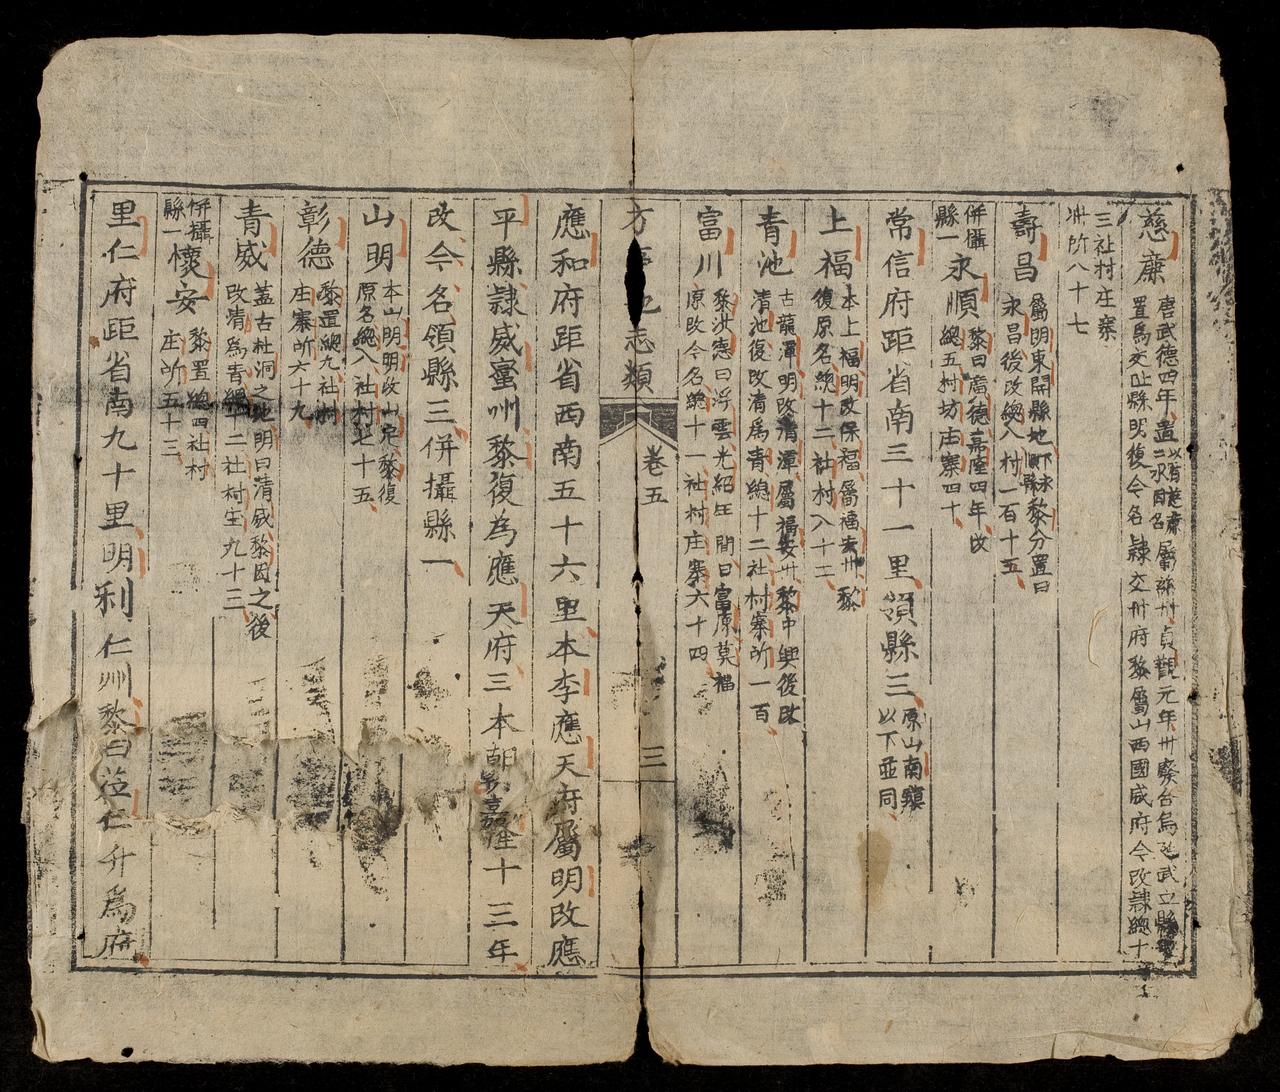 慈廉 唐武德四年置以有慈廉二水因名屬慈州貞觀元年州廢
置爲交趾縣明復今名隸交州府黎屬山西國威府今改隸總十
三社村庄寨
州所八十七
壽昌 屬明東關縣地黎分置曰
永昌後改總八村一百十五
併攝縣一永順 黎曰廣德嘉隆四年改
總五村坊庄寨四十
常信府距省南三十一里領縣三 原山南鎮
以下並同
上福 本上福明改保福屬福安州黎
復原名總十二社村八十二
青池 古龍潭明改清潭屬福安州黎中興後改
清池復改清爲青總十二社村寨所一百
富川 黎洪德曰浮雲光紹年間曰富原莫福
原改今名總十一社村庄寨六十四
方 志類 卷五 三
應和府距省西南五十六里本李應天府屬明改應
平縣隸威蠻州黎復爲應天府三本朝嘉隆十三年
改今名領縣三併攝縣一
山明 本山明明改山定黎復
原名總八社村七十五
彰德 黎置總九社村
庄寨所六十九
青威 蓋古杜洞之地明曰清威黎因之後
改清爲青總十二社村庄九十三
併攝縣一懷安 黎置總四社村
庄所五十三
里仁府距省南九十里明利仁州黎曰莅仁升爲府